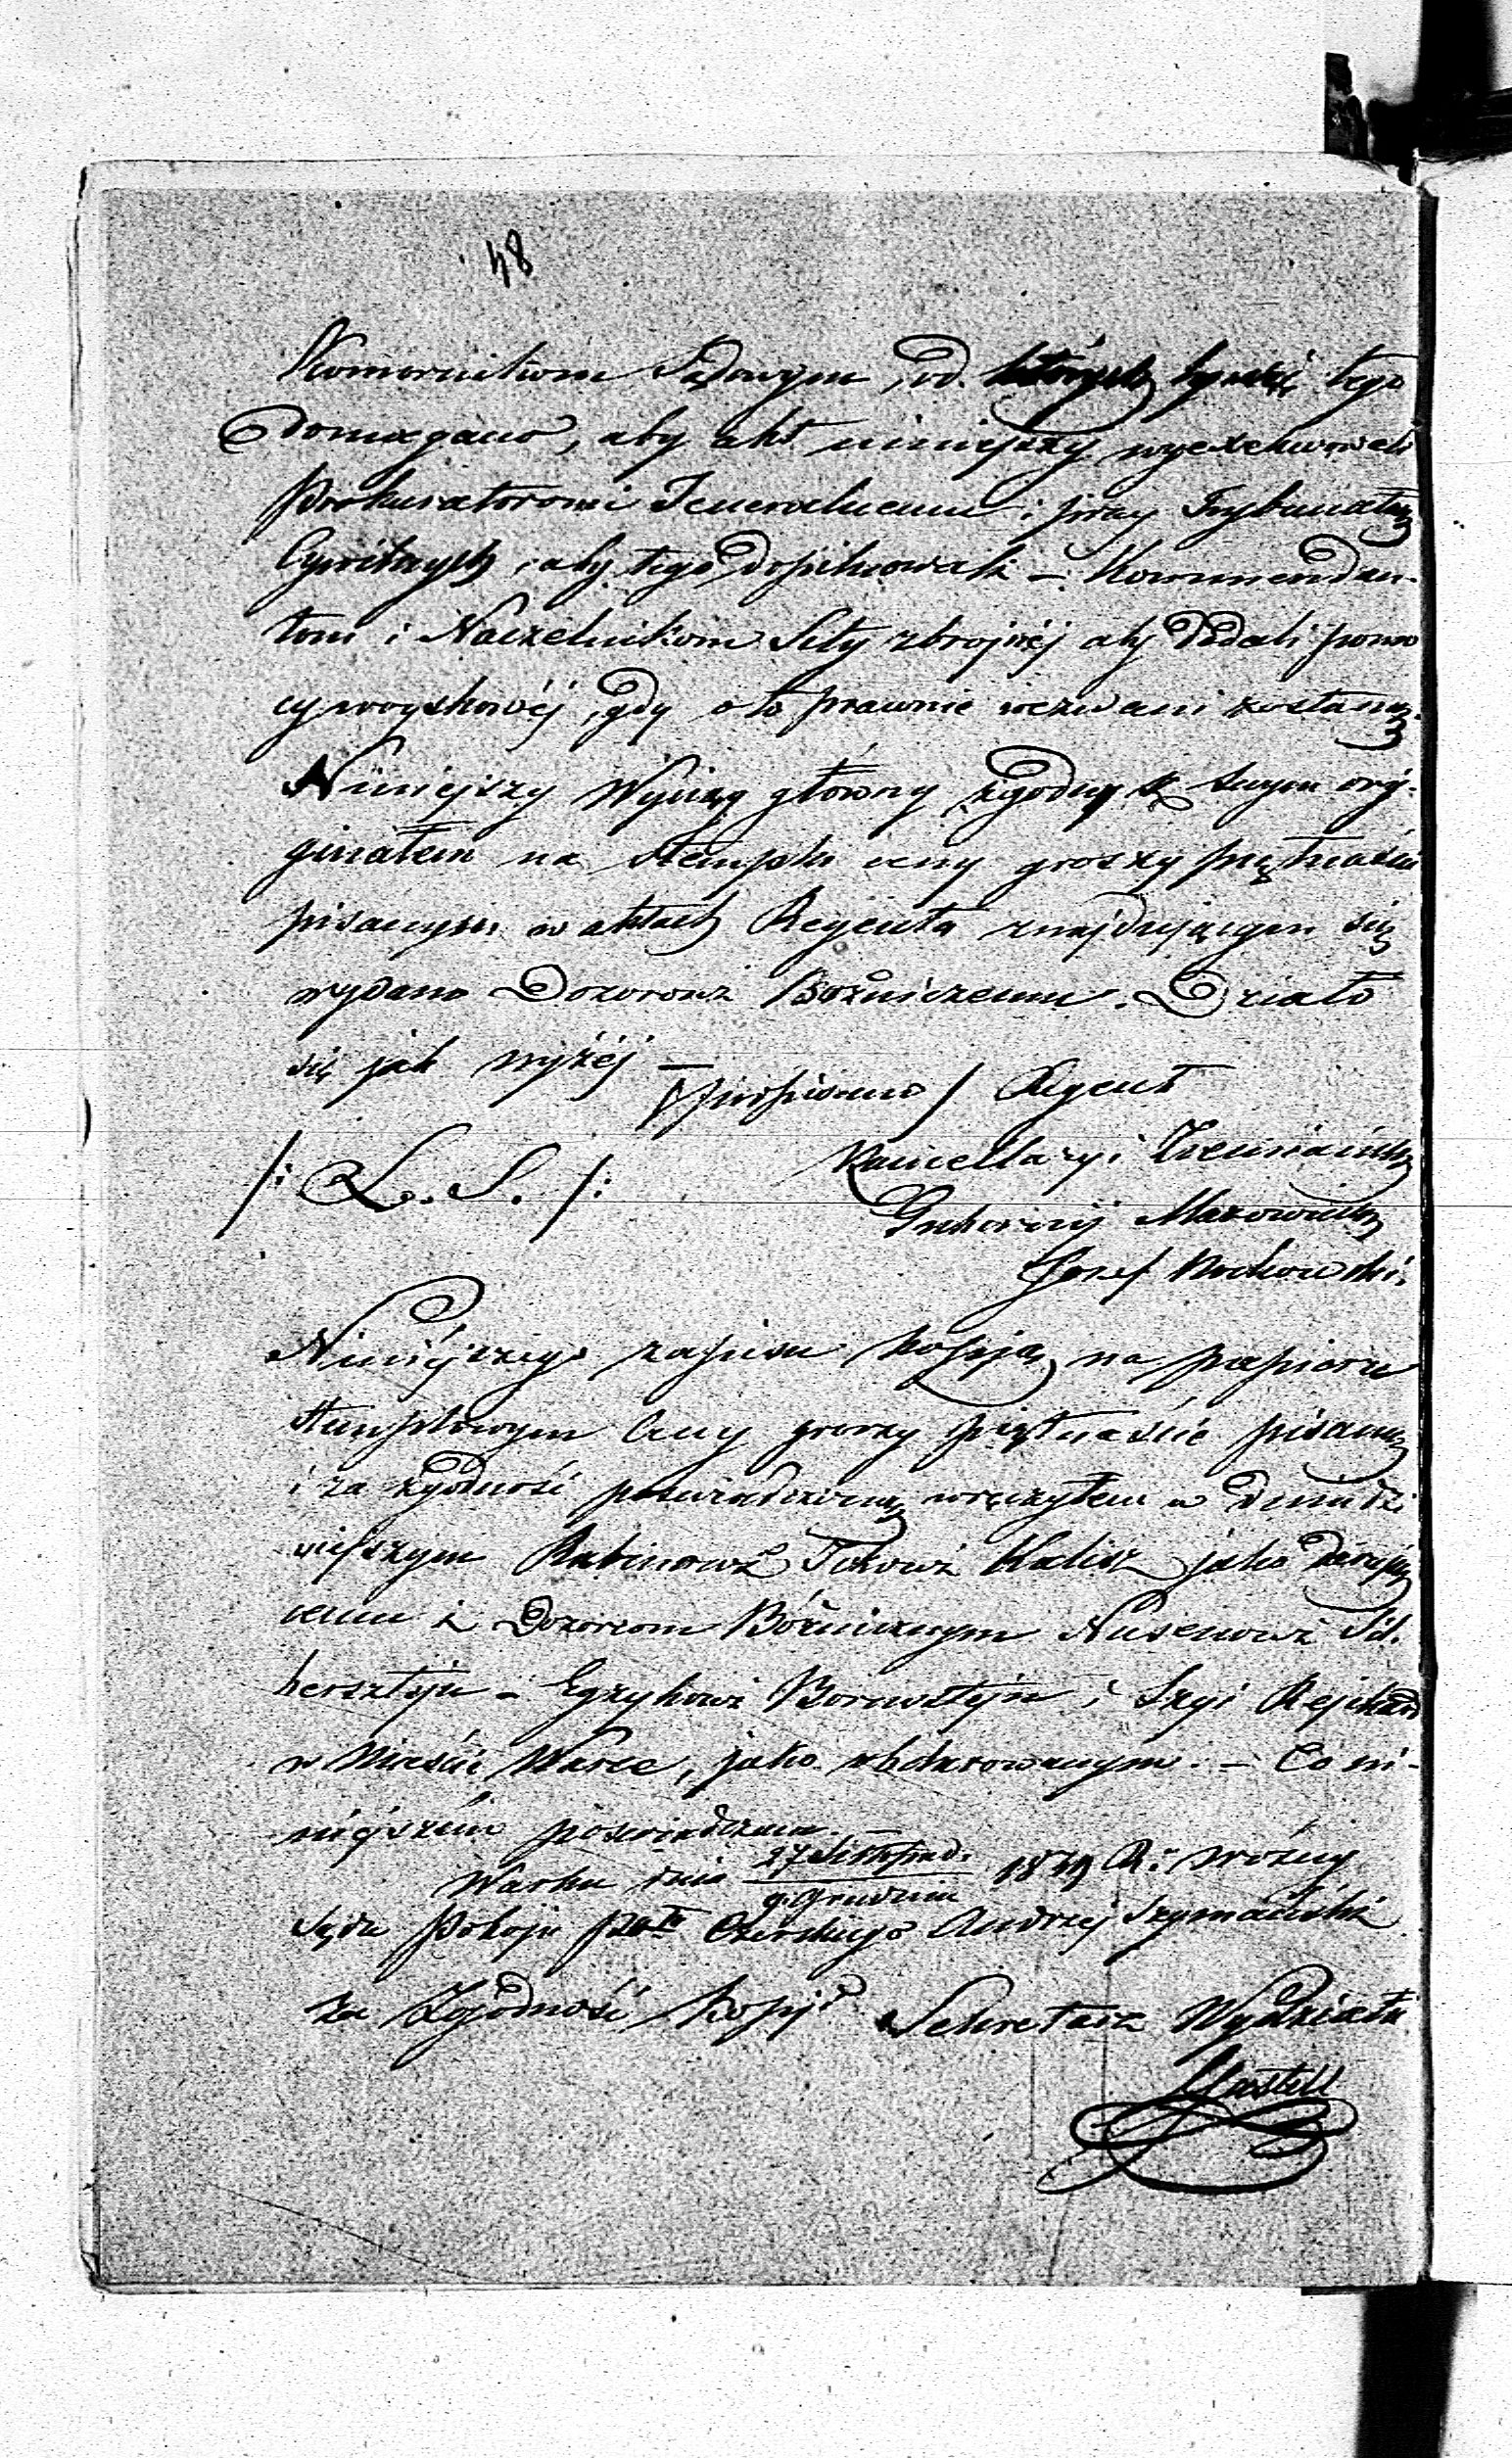 48
Komornikom Sądowym, od których by się tego
domagano, aby akt niniejszy wyexekwowali
Prokuratoromi Jeneralnemu i przy Trybunałach
Cywilnych, aby tego dopilnowali – Kommendan-
tom i Naczelnikom Siły zbrojnéj aby dodali pomo
cy woyskowéj, gdy o to prawnie wezwani zostaną.
Niniejszy Wyciąg główny zgodny z swym ory-
ginałem na stemplu ceny groszy piętnaście
pisanym w aktach Regenta znajdującym się
wydano Dozorowi Bożniczemu. Działo
się jak wyżéj –
/podpisano/ Regent
/: L. S. :/
Kancellaryi Ziemiańsk
Gubernij Mazowieck
Józef
Niniéjszego zapisu kopiją na papierze
stemplowym Ceny groszy piętnaście pisaną
i za zgodność poświadczoną wręczyłem w dniu dzi
siejszym Rabinowi Kalisz jako darują
cemu i Dozorcom Bóżnicznym Nusenowi Sil-
bersztejn – Borensztejn i Szyi
w Mieście Warce, jako obdarowanym. – Co ni-
niéjszém poświadczam.
Warka dnia 27 Listopad. / 9. Grudnia 1849 R: Woźny
Sądu Pokoju Ptu Czerskiego Andrzej Szymański
za Zgodność kopji Sekretarz Wydziału